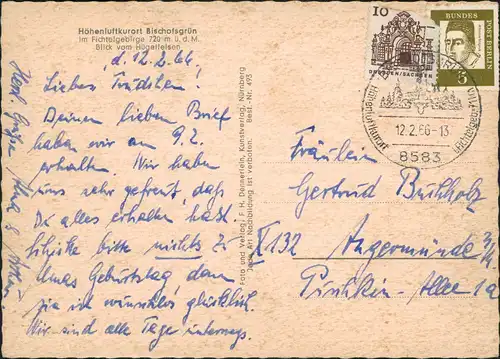 Höhenluftkurort Bischofsgrün
im Fichtelgebirge 720 m ü. d. M.
Blick vom Hügelfelsen
d. 12.2.66.
Liebes Trudchen!
Deinen lieben Brief
haben wir am 9.2.
erhalten. Wir haben
uns sehr gefreut, daß
Du alles erhalten hast.
Schicke bitte nichts zu
Omas Geburtstag, denn
sie ist wunschlos glücklich.
Wir sind alle Tage unterwegs.
Herzl. Grüße
Foto und Verlag: F. H. Dennerlein, Kunstverlag, Nürnberg
Jede Art Nachbildung ist verboten. Best.-Nr. 493
10
DRESDEN/SACHSEN
BUNDES
POST BERLIN
5
Höhenluftkurort
12.2.66-13
8583
Fräulein
Gertrud Buchholz
X 132 Angermünde
Puschkin-Allee 1a